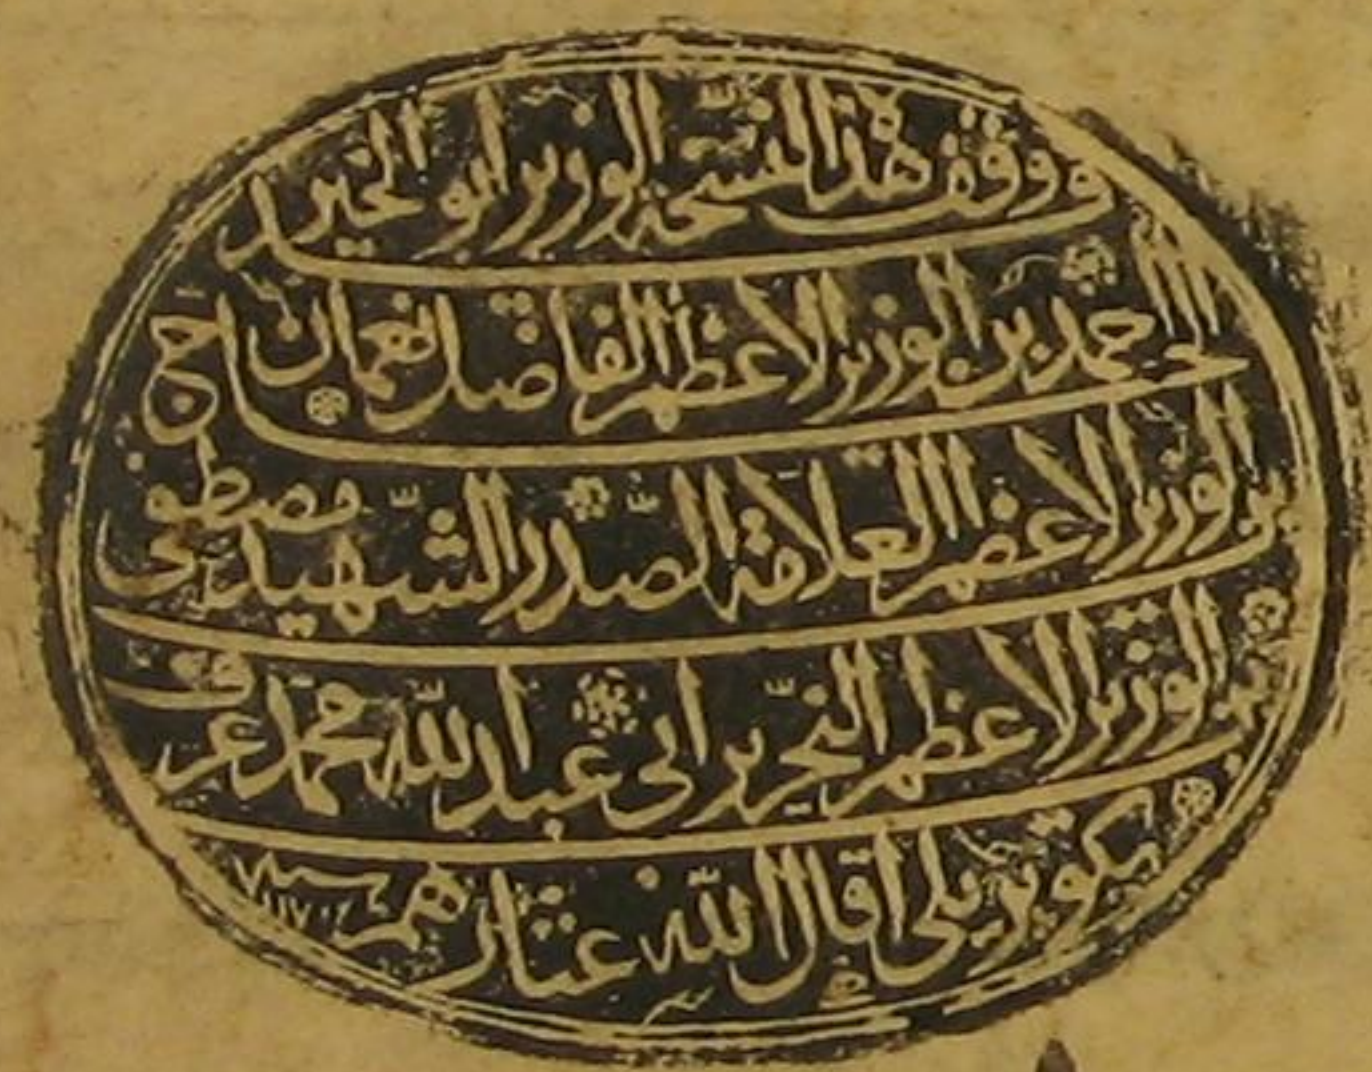 و وقف هذا النسخة الوزير ابو الخير
الحاج احمد بن الوزير الاعظم الفاضل نعمان
بن الوزير الاعظم العلامة الصدر الشهيد مصطفى
بن الوزير الاعظم النحرير ابى عبد الله محمد عرف
بكوپريلى اقال الله عثارهم سنه